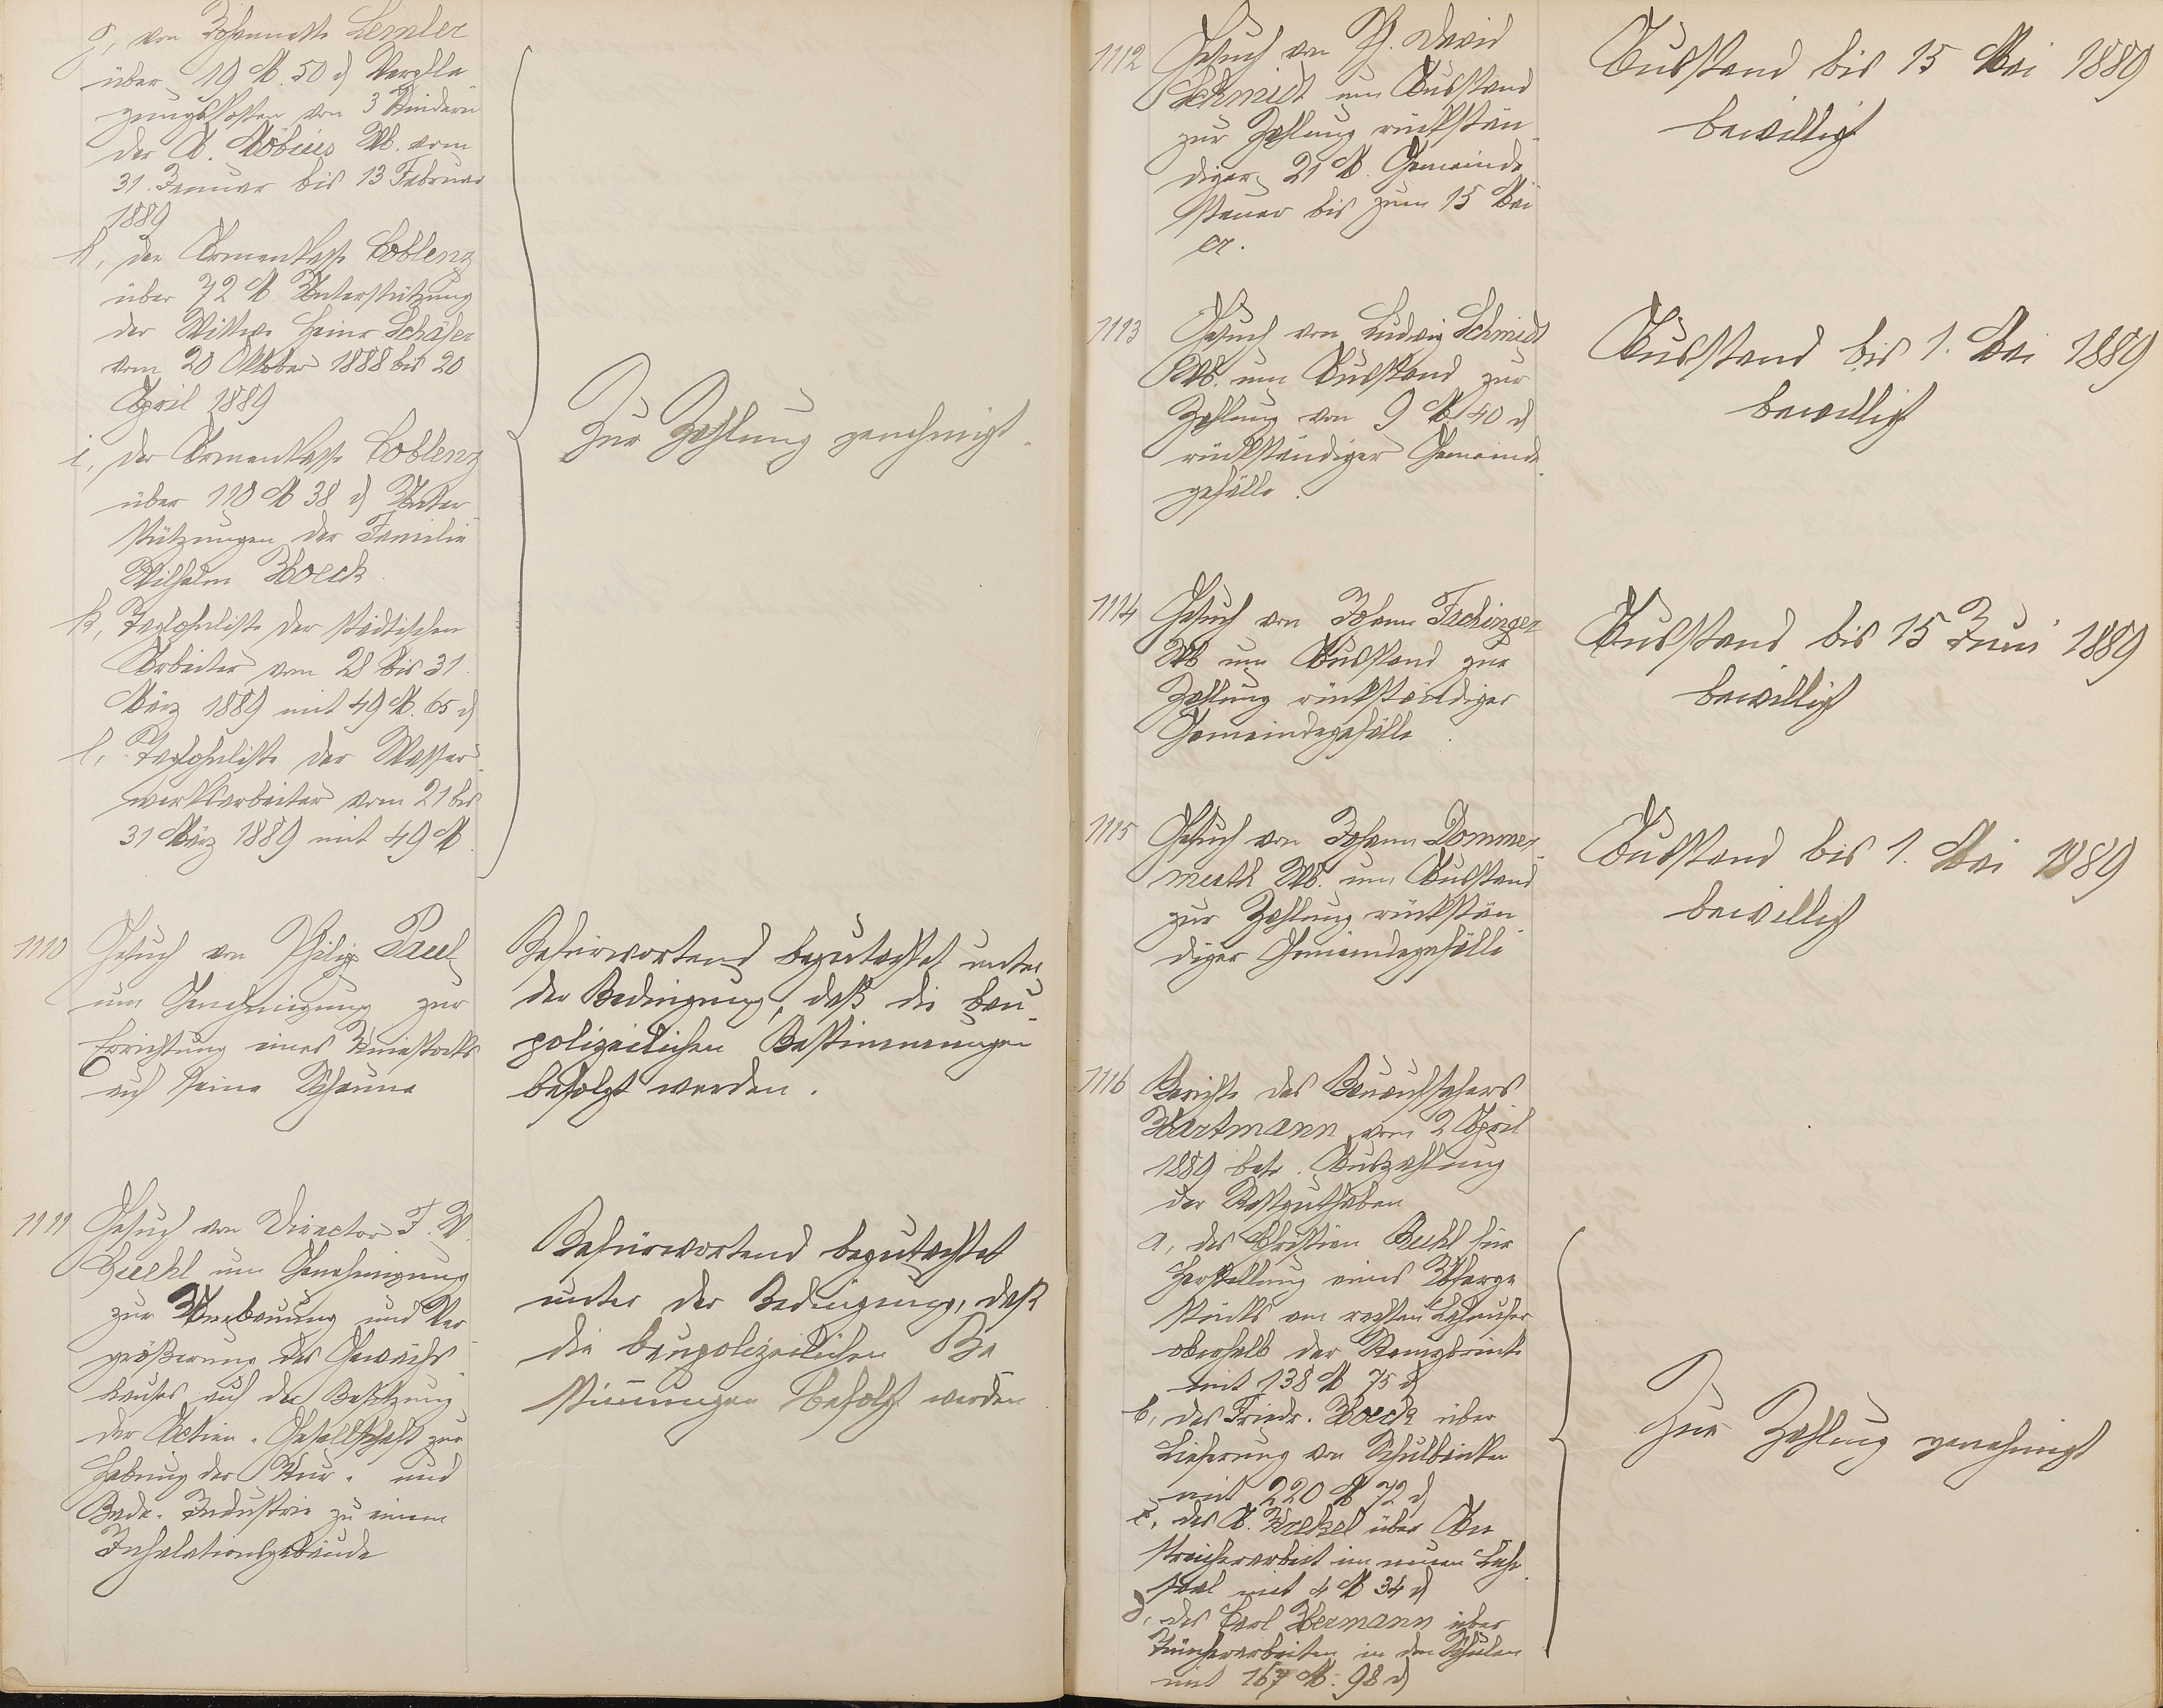 g, von Johannette Lemler
über 19 M. 50 d Verpfle
gungskosten von 3 Kindern
der A. Möbius Wb. vom
31. Januar bis 13 Februar
1889
h, der Armenkasse Coblenz
über 72 M. Unterstützung
der Wittwe Heinr Schäfer
vom 20 Oktober 1888 bis 20
April 1889
i, der Armenkasse Coblenz
über 110 M 38 d Unter
stützungen der Familie
Wilhelm Hoeck
k, Taglohnliste der städtischen
Arbeiter vom 28 bis 31.
März 1889 mit 49 M. 65 d
l, Taglohnliste der Wasser-
werksarbeiter vom 21 bis
31 März 1889 mit 49 M
Zur Zahlung genehmigt.
1110 Gesuch von Philipp Paul
um Genehmigung zur
Errichtung eines Kniestocks
auf seine Scheune
Befürwortend begutachtet unter
der Bedingung, daß die bau-
polizeilichen Bestimmungen
befolgt werden.
1111 Gesuch von Director F. W.
um Genehmigung
zur Umbauung und Ver-
größerung des Gewächs-
hauses auf der Besitzung
der Actien-Gesellschaft zur
Hebung der Kur- und
Bade-Industrie zu einem
Inhalationsgebäude
Befürwortend begutachtet
unter der Bedingung, daß
die baupolizeilichen Be
stimmungen befolgt werden
1112 Gesuch von Ph. David
Schmidt um Ausstand
zur Zahlung rückstän-
diger 21 M. Gemeinde
steuer bis zum 15 Mai
cr.
Ausstand bis 15 Mai 1889
bewilligt
1113 Gesuch von Ludwig Schmidt
Wb. um Ausstand zur
Zahlung von 9 M 40 d
rückständiger Gemeinde-
gefälle.
Ausstand bis 1. Mai 1889
bewilligt
1114 Gesuch von Johann Fachinger
Wb um Ausstand zur
Zahlung rückständiger
Gemeindegefälle.
Ausstand bis 15 Juni 1889
bewilligt
1115 Gesuch von Johann Dommer-
muth Wb. um Ausstand
zur Zahlung rückstän
diger Gemeindegefälle
Ausstand bis 1. Mai 1889
bewilligt
1116 Berichte des Bauaufsehers
Hartmann vom 2 April
1889 betr. Auszahlung
der Restguthaben
a, des Christian Buhl für
Herstellung eines
am rechten Lahnufer
oberhalb der
mit 138 M 75 d
b, des Friedr. Hoeck über
Lieferung von Schulbänken
mit 220 M 72 d
c, des A. über An
streicherarbeit im neuen Lehr-
saal mit 4 M 34 d
d, des Carl Hermann über
Tüncherarbeiten in den Schulen
mit 167 M. 98 d
Zur Zahlung genehmigt